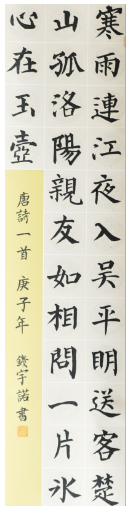 寒雨連江夜入吴平明送客楚
山孤洛陽親友如相問一片氷
心在玉壺
唐詩一首 庚子年 錢宇諾書